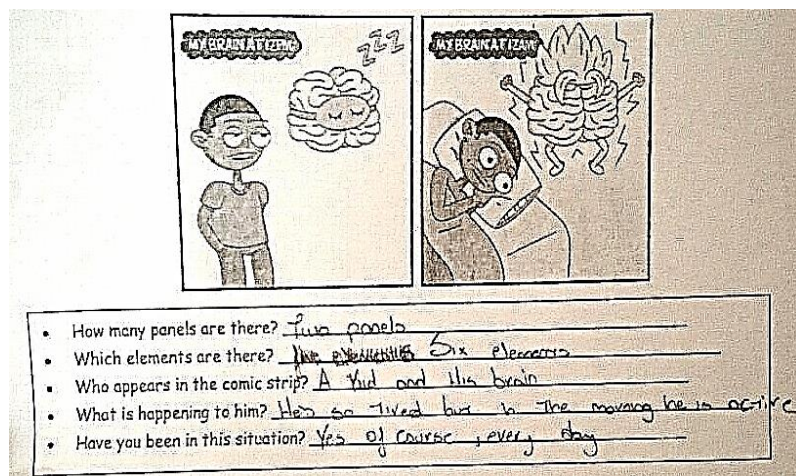 MY BRAIN AT 12PM
ZZZ
MY BRAIN AT 12AM
• How many panels are there? Two panels
• Which elements are there? Six elements
• Who appears in the comic strip? A Kid and His brain
• What is happening to him? He's so tired but in the morning he is active
• Have you been in this situation? Yes of course, every day